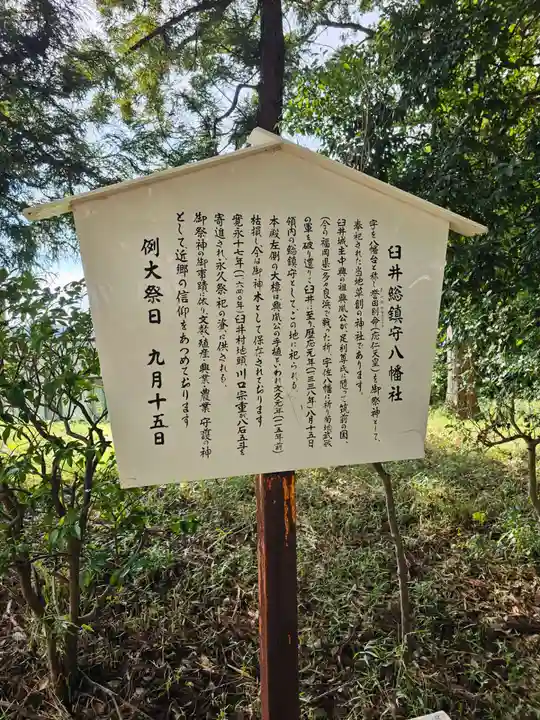 臼井総鎮守八幡社
字を八幡台と称し誉田別命(応仁天皇)を御祭神として、
奉祀された当地草創の神社であります。
臼井城主中興の祖興胤公が足利尊氏に随って筑前の国、
(今の福岡県)多々良浜で戦った折、宇佐八幡に祈り菊地武敏
の軍を破り遣り、臼井に至り暦応元年(一三三八年)八月十五日
領内の総鎮守として、この地に祀られる。
本殿左側の大樟は興胤公の手植といわれ文久元年(一一五年前)
枯損し今は御神木として保存されております
寛永十七年(一六四〇年)臼井村地頭、川口宗重が八石五斗を
寄進され永久祭祀の資に供されも、
御祭神の御事蹟に依り文教、殖産、興業、農業、守護の神
として、近郷の信仰をあつめております
例大祭日 九月十五日